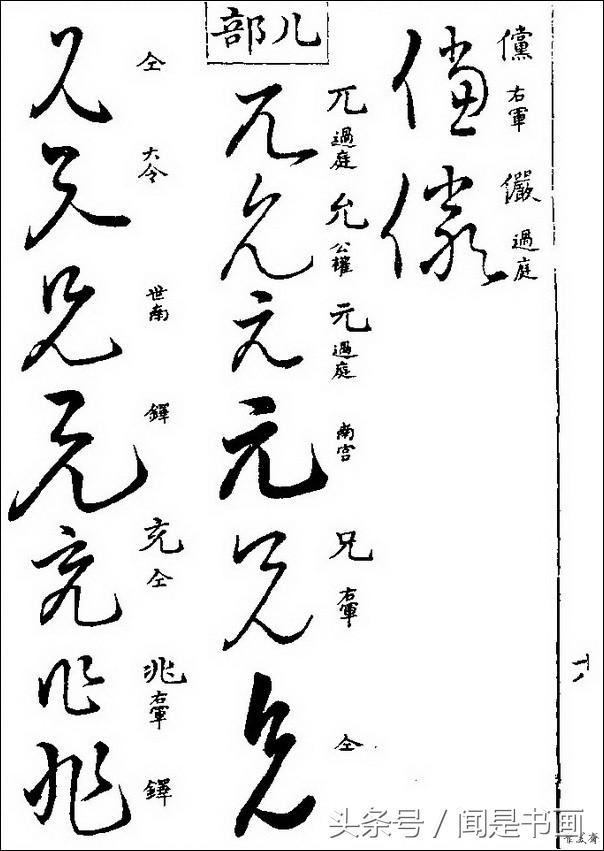 儻 右軍
儼 過庭
儿部
兀 過庭
允 公權
元 過庭
南宮
兄 右軍
仝
仝
大令
世南
鐸
充 仝
兆 右軍
鐸
十八
头条号 / 闻是书画